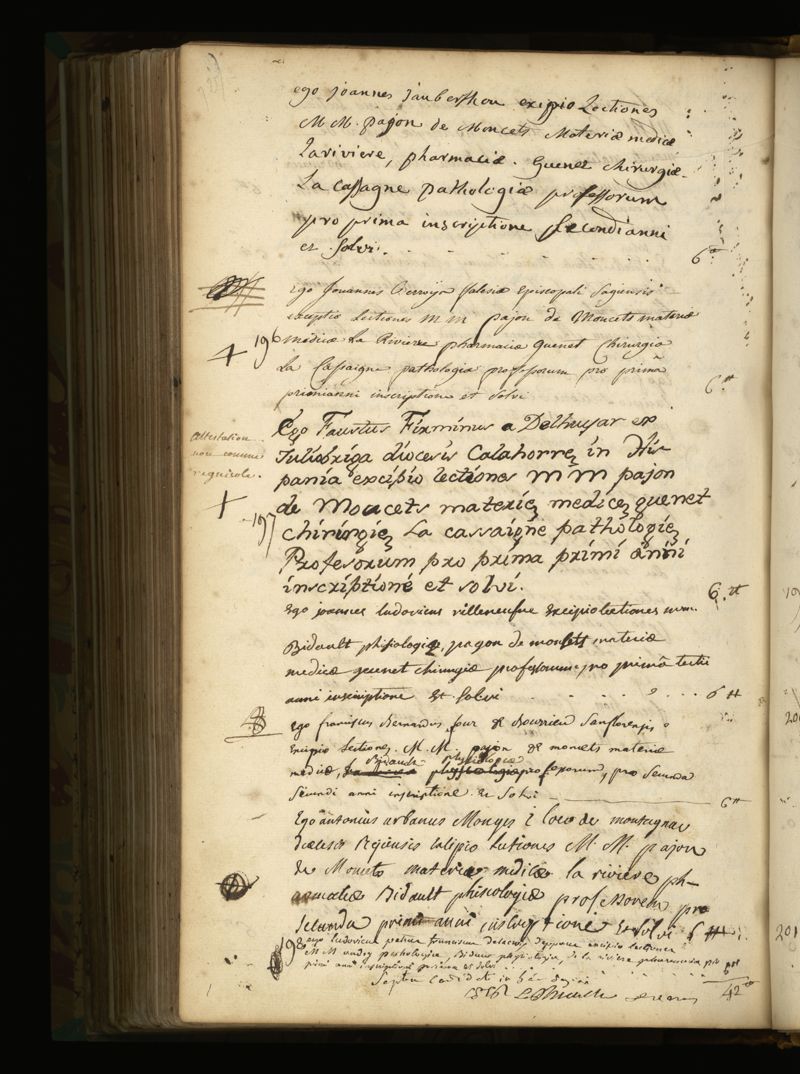 ego joannes Jauberthou excipio Lectiones
M M. pajon de Moncets Materiæ medicæ
Lariviere, pharmaciæ. Guenet chirurgiæ
La cassagne pathologiæ professorum
pro prima inscriptione secondi anni
et solvi. 6 ₶
Ego Joannes episcopali sagiensis
excipio Lectiones m m pajon de Moncets materiæ
196 medicæ La Riviere pharmaciæ Guenet Chirurgiæ
La Cassaigne pathologiæ professorum pro primâ
primi anni inscriptione et solvi 6 ₶
attestation
non comme
regnicole.
197
Ego Faustus Firminus a Delhuyar ex
Juliobriga diocesis Calahorrę in His-
pania excipio lectiones m m pajon
de Moncets materię medicę, guenet
chirurgię La cassaigne pathologię
Profesorum pro prima primi anni
inscriptione et solvi. 6 ₶
Ego joannes ludovicus villeneufve Excipio lectiones mm.
Bidault phisiologiæ, pajon de moncets materiæ
medicæ guenet chirurgiæ professorum pro primâ tertii
anni inscriptione et solvi 6 ₶
Ego franciscus Bernardus four de Bourrieu Sanflorensis
Excipio Lectiones M. M. pajon de moncets materiæ
Bidault physiologiæ
medicæ, professorum, pro secunda
secundi anni inscriptione et solvi 6 ₶
Ego antonius urbanus Monges è loco de montagnac
diœcesis Regiensis excipio Lectiones M. M. pajon
de Moncets materiæ medicæ la riviere ph-
armaciæ Bidault phisiologiæ professorum pro
secunda primi anni inscriptione et solvi 6 ₶
198 ego ludovicus excipio lectiones
M M pathologiæ, Bidault physiologiæ, de la riviere pharmaciæ pro
primi anni inscriptione et solvi 6
Septem candidati in hac pagina 42 ₶